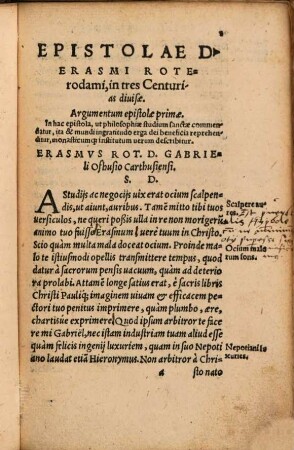 EPISTOLAE D
ERASMI ROTE-
rodami, in tres Centuri-
as diuisæ.
Argumentum epistolæ primæ.
In hac epistola, ut philosophiæ studium sanctæ commen
datur, ita & mundi ingratitudo erga dei beneficia reprehen
ditur, monasticumq; institutum uerum describitur.
ERASMVS ROT. D. GABRIE-
li Ofhusio Carthusiensi.
S. D.
A Studijs ac negocijs uix erat ocium scalpen-
di, ut aiunt, auribus. Tamē mitto tibi tuos
uersiculos, ne queri poßis ulla in re non morigerū
animo tuo fuisse Erasmum, uerè tuum in Christo.
Scio quàm multa mala doceat ocium. Proinde ma
lo te istiusmodi opellis transmittere tempus, quod
datur à sacrorum pensis uacuum, quàm ad deterio
ra prolabi. Attamē longe satius erat, è sacris libris
Christi Pauliq; imaginem uiuam & efficacem pe-
ctori tuo penitus imprimere, quàm plumbo, ære,
chartisue exprimere. Quod ipsum arbitror te face
re mi Gabriel, nec istam industriam tuam aliud esse
quàm felicis ingenij luxuriem, quam in suo Nepoti
ano laudat etiā Hieronymus. Non arbitror à Chri-
a sto nato
Scalpere au-
res.
Ocium mala-
rum fons.
Nepotiani lu
xuries.